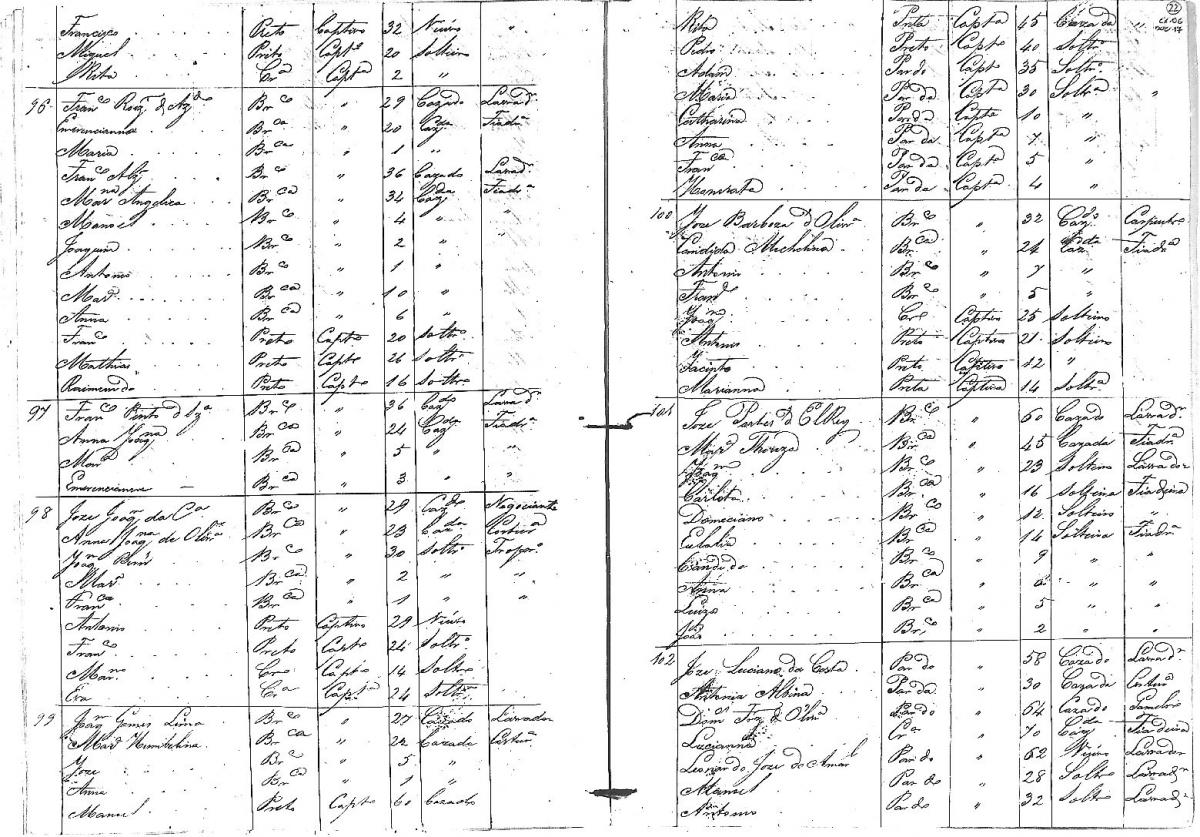 Francisco Preto Captivo 32 Viúvo "
Miguel Preto Capto 20 Solteiro
Rita Cra Capta 2 "
96 Franco Roiz d Azdo Brco " 29 Cazado Lavrador
Emerencianna Brca " 20 Cazda Fiadra
Maria Brca " 1 "
Franco Alz Brco " 36 Cazado Lavrador
Marna Angelica Brca " 34 Cazda Fiadra
Manoel Brco " 4 " "
Joaquim Brco " 2 " "
Antonio Brco " 1 "
Mara Brca " 10 "
Anna Brca " 6 "
Franco Preto Capto 20 Soltro
Mathias Preto Capto 26 Soltro
Raimundo Preto Capto 16 Soltro
97 Franco Pinto d Aza Brco " 36 Cazdo Lavrador
Anna Joaqna Brca " 24 Cazda Fiadra
Mara Brca " 5 " "
Emerencianna Brca " 3 " "
98 Joze Joaqm da Ca Brco " 29 Cazdo Negociante
Anna Joaqna de Olivra Brca " 23 Cazda Costura
Joaqm Brco " 30 Soltro Tropro
Mara Brca " 2 " "
Franca Brca " 1 " "
Antonio Preto Captivo 29 Viúvo
Franco Preto Capto 24 Soltro
Marno Cro Capto 14 Soltro
Eva Cra Capta 24 Soltra
99 Joaqm Gomes Lima Brco " 27 Cazado Lavrador
Mara Brca " 22 Cazada Costura
Joze Brco " 5 "
Anna Brca " 1 "
Manuel Preto Capto 60 Cazado
22
Rita Preta Capta 45 Cazada "
Pedro Preto Capto 40 Soltro
Adam Pardo Capto 35 Soltro
Maria Parda Capta 30 Soltra "
Catharina Parda Capta 10 "
Anna Parda Capta 7 "
Franca Parda Capta 5 "
Honorata Parda Capta 4 "
100 Joze Barboza d Olivra Brco " 32 Cazdo Carpintro
Candida Michelina Brca " 24 Cazda Fiadra
Antonio Brco " 7 "
Franco Brco " 5 "
Joaqm Cro Captivo 25 Solteiro
Antonio Preto Captivo 21 Solteiro
Jacinto Preto Captivo 12 "
Marianna Preta Captiva 14 Soltra
101 Joze Portes d ElRey Brco " 60 Cazado Lavrador
Mara Thereza Brca " 45 Cazada Fiadra
Joaqm Brco " 23 Solteiro Lavrador
Carlota Brca " 16 Solteira Fiadeira
Domiciano Brco " 12 Solteiro "
Eulalia Brca " 14 Solteira Fiadra
Candido Brco " 9 " "
Anna Brca " 6 " "
Luiza Brca " 5 " "
João Brco " 2 " "
102 Joze Luciano da Costa Pardo " 58 Cazado Lavrador
Antonia Albina Parda " 30 Cazada Costura
Domos Joze d Olivra Pardo " 64 Cazado
Lucianna Cra " 70 Cazda Fiadeira
Leonardo Joze do Amaral Pardo " 62 Viúvo Lavrador
Manuel Pardo " 28 Soltro Lavrador
Antonio Pardo " 32 Soltro Lavrador